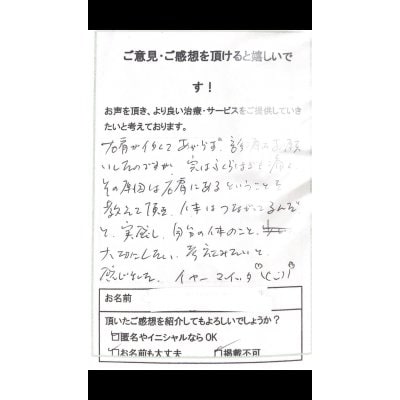 ご意見・ご感想を頂けると嬉しいで
す！
お声を頂き、より良い治療・サービスをご提供していき
たいと考えております。
右肩がイタくてあがらず、診
いしたのですが 実はふくらはぎも痛く、
その原因は右肩にあるということを
教えて頂き、人体はつながってるんだ
と、実感し、自分の体のこと、
大切にしたい、考えてみたいと
感じました。イヤー マイッタ
お名前
頂いたご感想を紹介してもよろしいでしょうか？
□匿名やイニシャルならOK
□お名前も大丈夫 □掲載不可